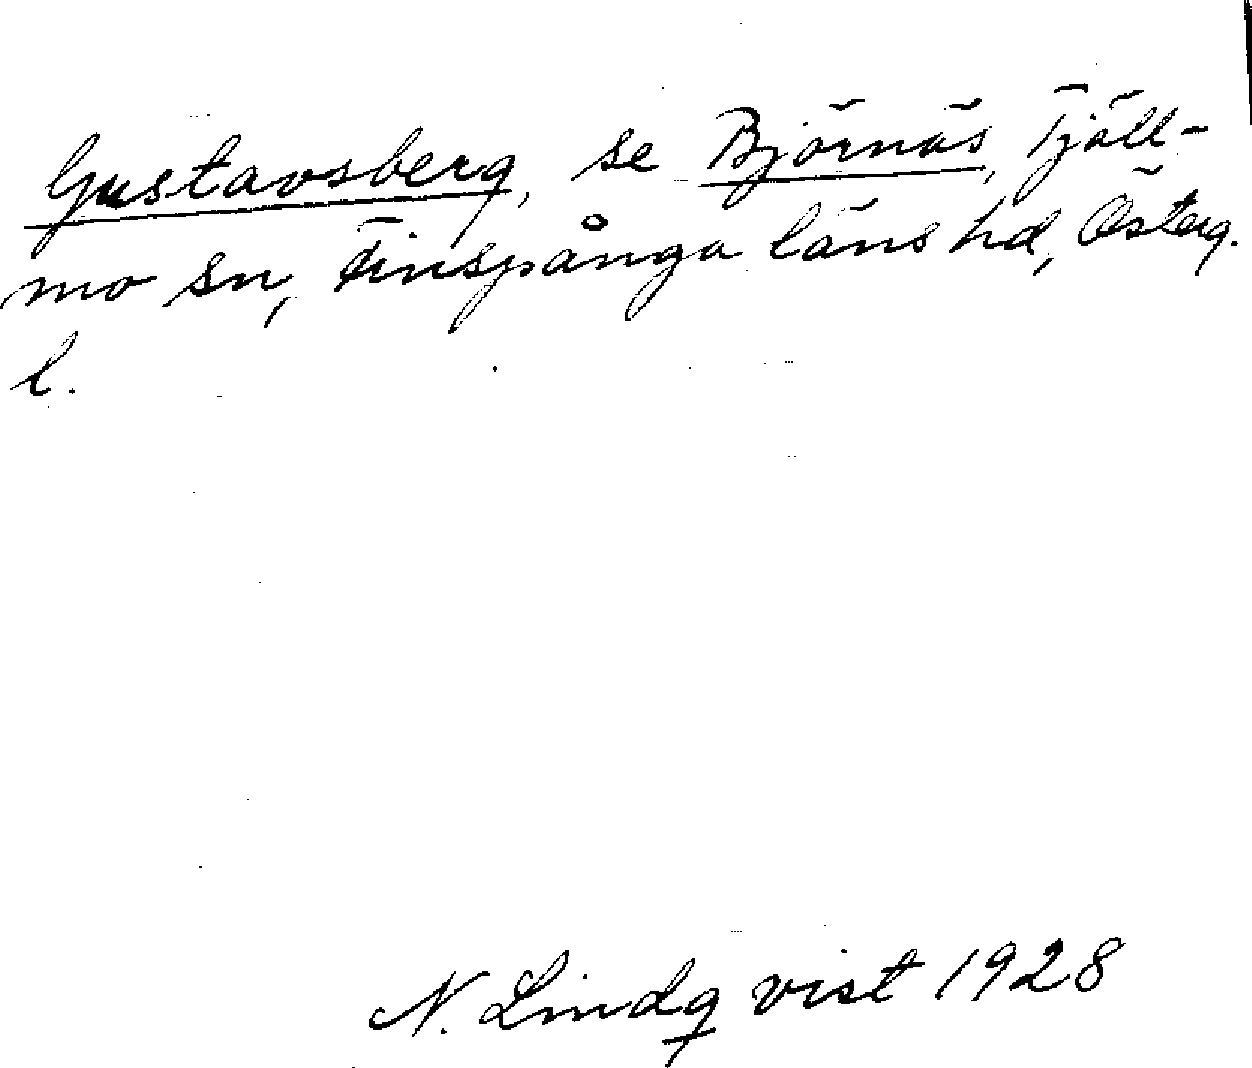 Gustavsberg, se Björnäs, Tjäll-
mo sn, Finspånga läns hd, Österg.
l.
N. Lindqvist 1928